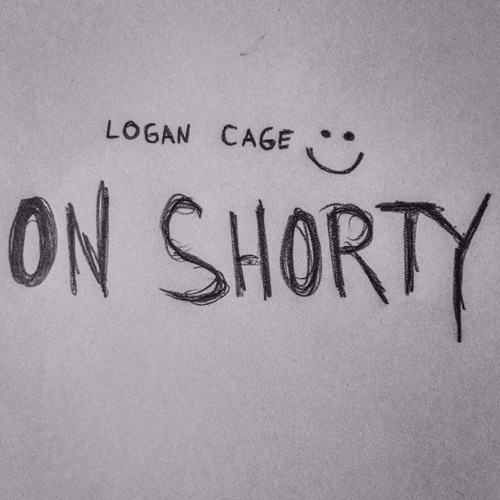 LOGAN CAGE
ON SHORTY